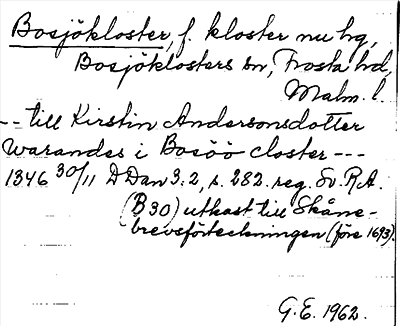 Bosjökloster, f. kloster nu hg,
Bosjöklosters sn, Frosta hd,
Malm. l.
-- till Kirstin Andersonsdotter
warandes i Bosöö closter ---
1346 30/11 DDan 3.2, s. 282. reg. Sv. R.A.
(B30) utkast till Skåne-
brevsförteckningen (före 1693).
G.E. 1962.